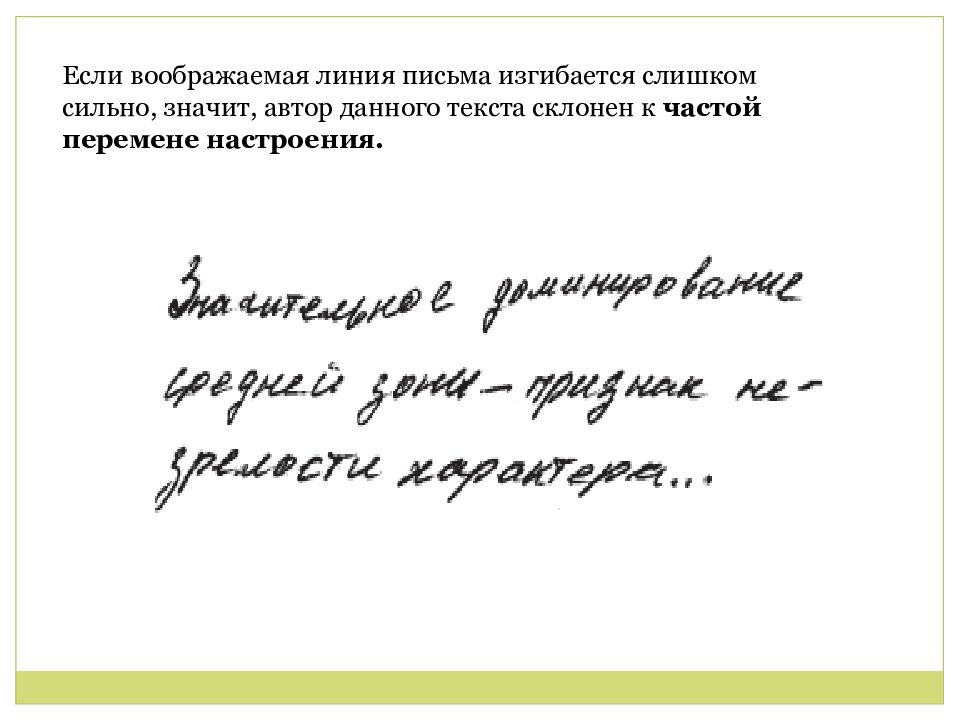 Если воображаемая линия письма изгибается слишком
сильно, значит, автор данного текста склонен к частой
перемене настроения.
Значительное доминирование
средней зоны – признак не-
зрелости характера...